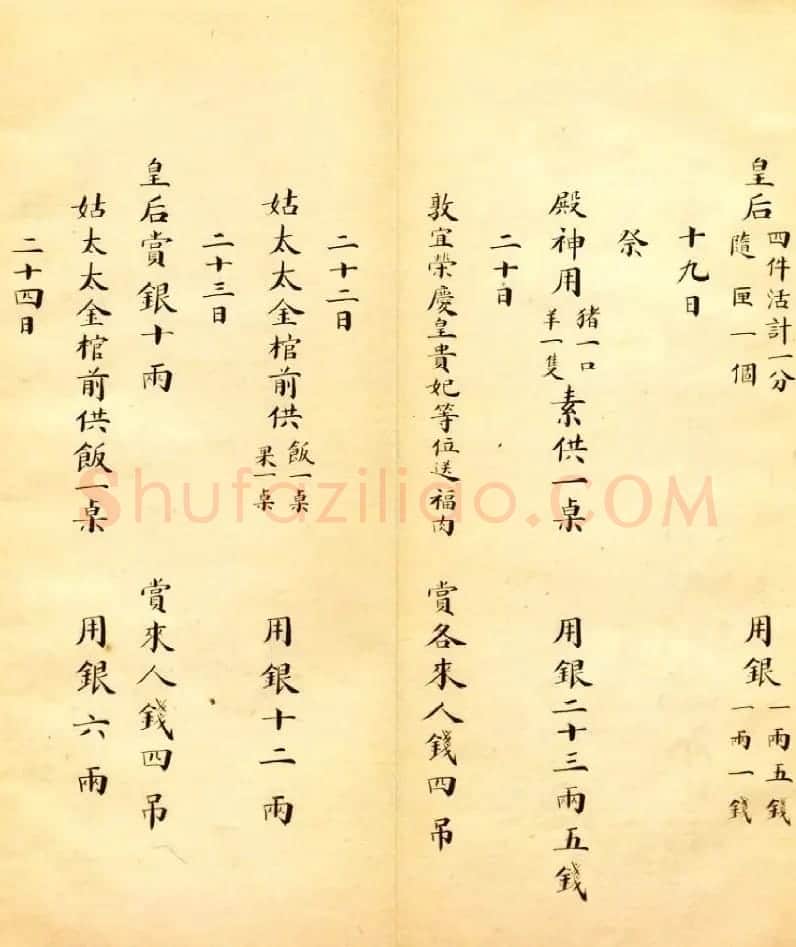 皇后 四件活計一分 隨匣一個 用銀 一兩五錢 一兩一錢
十九日
祭
殿神用 豬一口 羊一隻 素供一桌 用銀二十三兩五錢
二十日
敦宜榮慶皇貴妃等位送福肉 賞各來人錢四吊
二十二日
姑太太金棺前供 飯一桌 果一桌 用銀十二兩
二十三日
皇后賞銀十兩 賞來人錢四吊
姑太太金棺前供飯一桌 用銀六兩
二十四日
Shufaziliao.COM